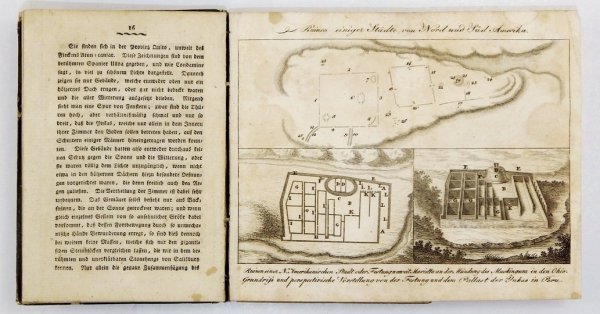 16
Sie finden sich in der Provinz Quito, unweit des
Fleckens Atun-cannar. Diese Zeichnungen sind von dem
berühmten Spanier Ulloa gegeben, und wie Condamine
sagt, in viel zu schönem Lichte dargestellt. Dennoch
zeigen sie nur Gebäude, welche entweder oben mit ein
hölzernes Dach trugen, oder gar nicht bedeckt waren
und die aller Witterung ausgesetzt blieben. Nirgends
sieht man eine Spur von Fenstern; zwar sind die Thü-
ren hoch, aber verhältnißmäßig schmal und nur so
breit, daß die Inkas, welche nur allein in dem Innern
ihrer Zimmer den Boden sollen betreten haben, auf den
Schultern einiger Männer hineingetragen werden konn-
ten. Diese Gebäude hatten also entweder durchaus kei-
nen Schutz gegen die Sonne und die Witterung, oder
sie waren völlig dem Lichte unzugänglich, wenn nicht
etwa in den hölzernen Dächern hierzu besondere Oefnun-
gen vorgerichtet waren, die dann freilich auch den Re-
gen zuliessen. Die Vertheilung der Zimmer ist dabei sehr
unbequem. Das Gemäuer selbst besteht nur aus Back-
steinen, die an der Sonne getrocknet waren; und wenn
gleich einzelnes Gestein von so ansehnlicher Größe dabei
vorkommt, daß dessen Fortbewegung durch so unwechs-
liche Hände Bewunderung erregt, so sind dieß dennoch
bei weitem keine Massen, welche sich mit den giganti-
schen Steinstöcken vergleichen lassen, die wir in dem be-
rühmten und unerklärbaren Stonehenge von Salisbury
kennen. Nur allein die genaue Zusammenfügung des
Ruinen einiger Städte von Nord und Süd Amerika.
Ruinen einer N. Amerikanischen Stadt oder Festung unweit Marietta an der Mündung des Muskingums in den Ohio.
Grundriß und perspectivische Vorstellung von der Festung und dem Pallast der Ynkas in Peru.